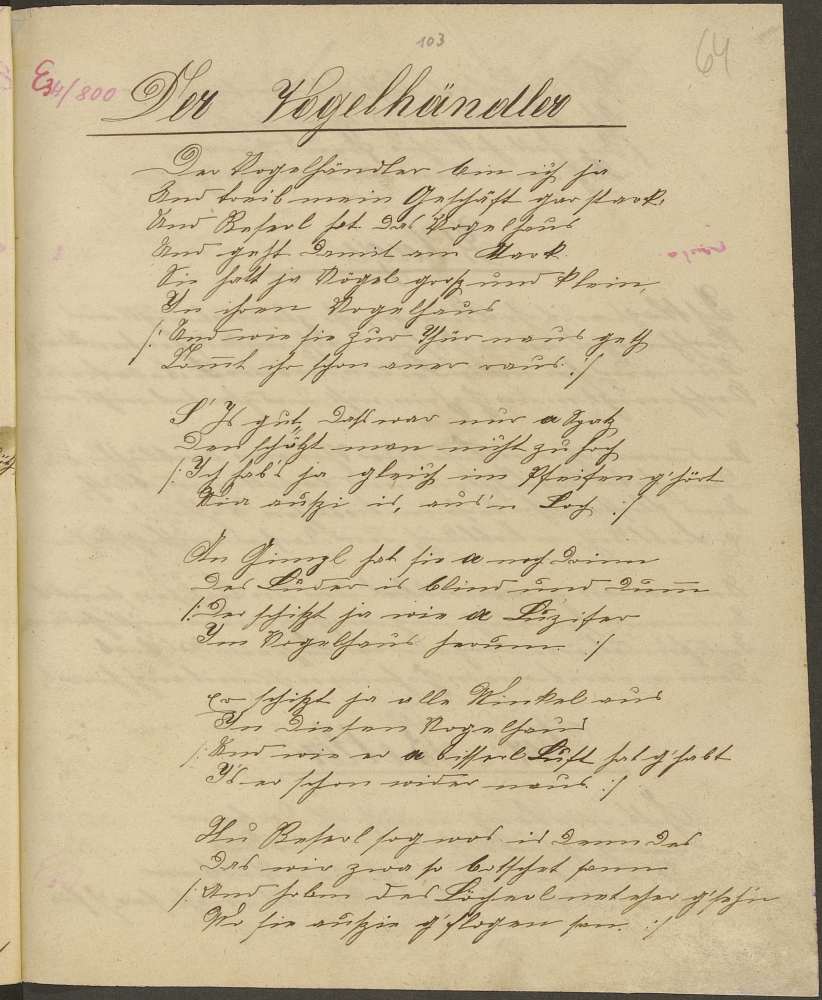 103
64
E34/800
Der Vogelhändler
Der Vogelhändler bin ich ja
Und treib mein Geschäft gar stark,
Und Reserl hat das Vogelhaus
Und geht damit am Mark
Sie hatt ja Vögel groß und klein,
In ihren Vogelhaus
/: Und wie sie zur Thür naus geth
Kommt ihr schon aner raus. :/
S' Is gut, daß war nur a Spatz
Den schätzt man nicht zu hoch
/: Ich hab's ja gleich im Pfeifen g'hört
Wia außi is, aus'n Loch :/
An Gimpl hat sie a noch drinn
Des Luder is blind und dumm
/: Der schißt ja wie a Luzifer
Im Vogelhaus herum. :/
Er schißt ja alle Winkel aus
In diesen Vogelhaus
/: Und wie er a bisserl Luft hat g'habt
Is er schon wider naus. :/
Nu Reserl sag was is denn des
Das wir zwa so botschet sann
/: Und haben des Löcherl net eher g'seh'n
Wo sie außzie g'flogen san. :/